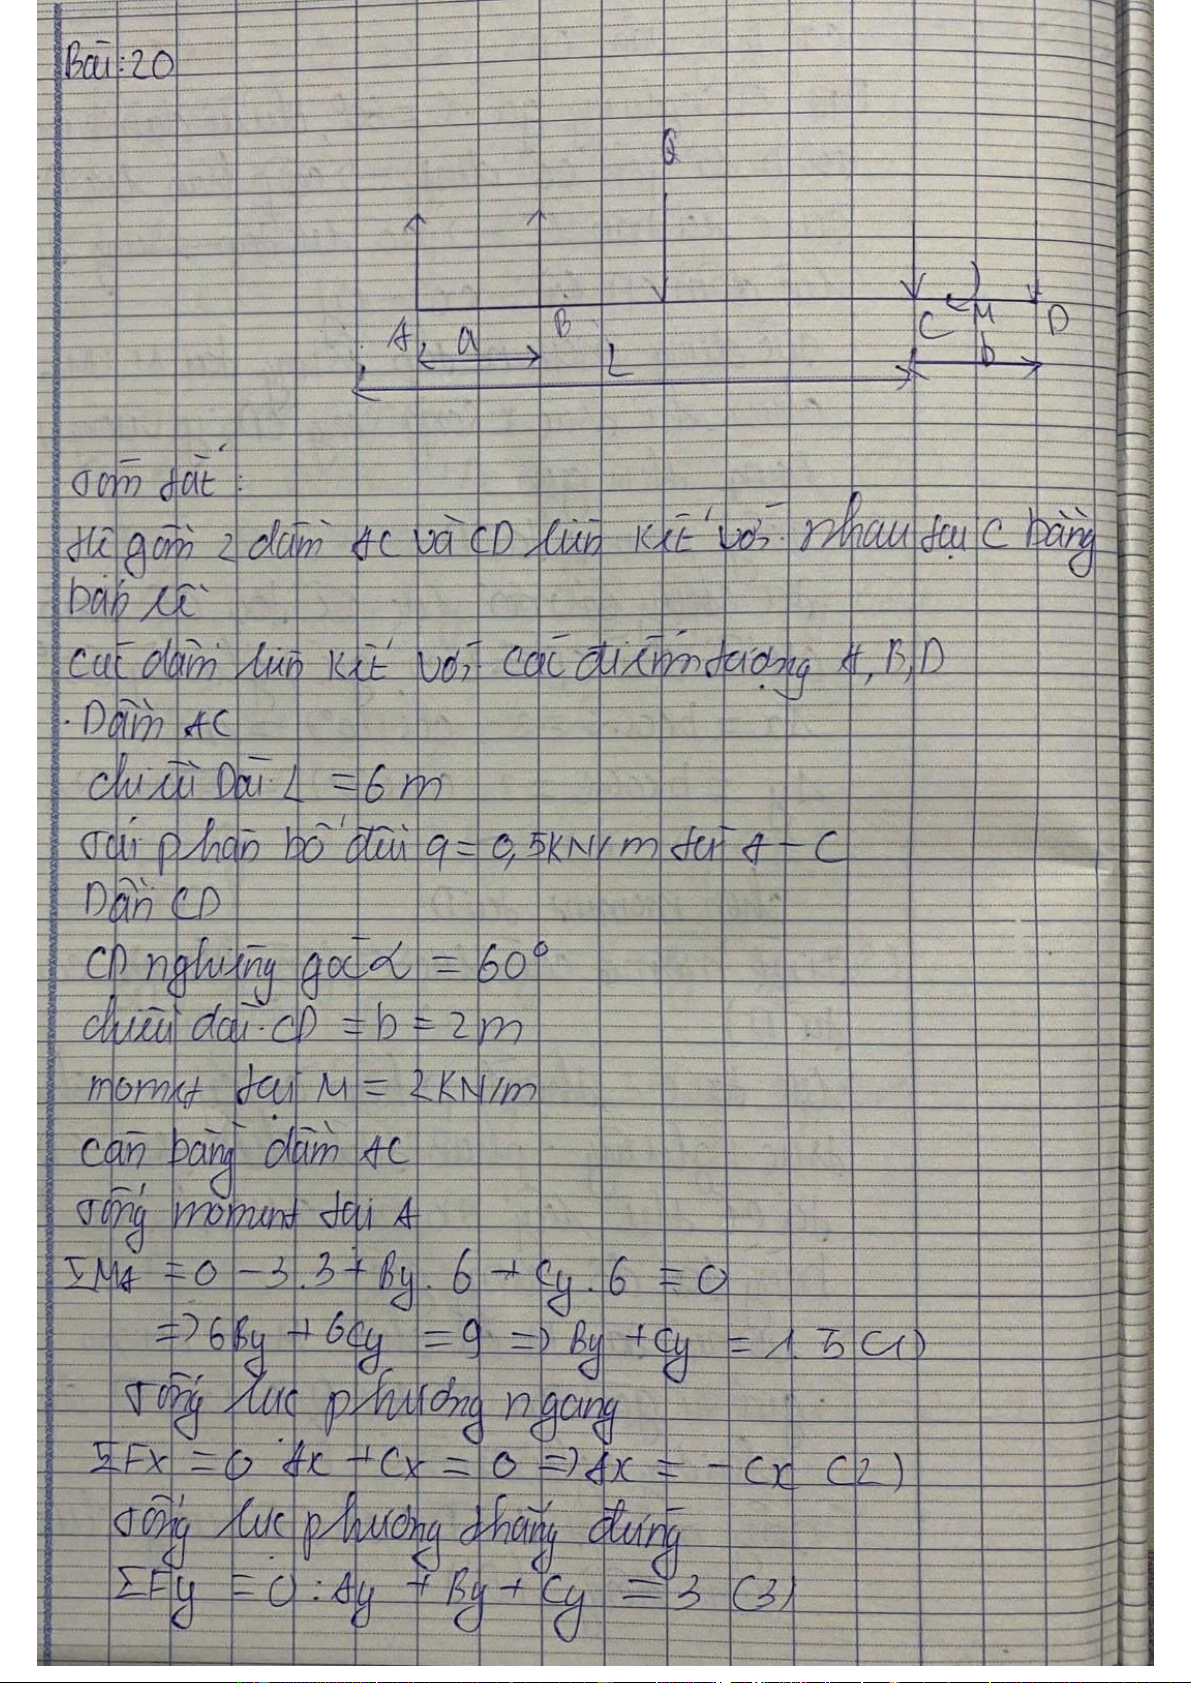 Bài: 20
Q
A
a
B
L
C
M
D
b
Tóm tắt:
Hệ gồm 2 dầm AC và CD liên kết với nhau tại C bằng
bản lề
các dầm liên kết với các điểm tường A, B, D
. Dầm AC
chiều Dài L = 6 m
Tải phân bố đều q = 0,5KN/m tại A - C
Dầm CD
CD nghiêng góc α = 60°
chiều dài CD = b = 2m
moment tại M = 2KN/m
cân bằng dầm AC
Tổng moment tại A
ΣMA = 0 - 3.3 + By. 6 + Cy. 6 = 0
=> 6By + 6Cy = 9 => By + Cy = 1.5 (1)
Tổng lực phương ngang
ΣFx = 0 Ax + Cx = 0 => Ax = - Cx (2)
Tổng lực phương thẳng đứng
ΣFy = 0 : Ay + By + Cy = 3 (3)